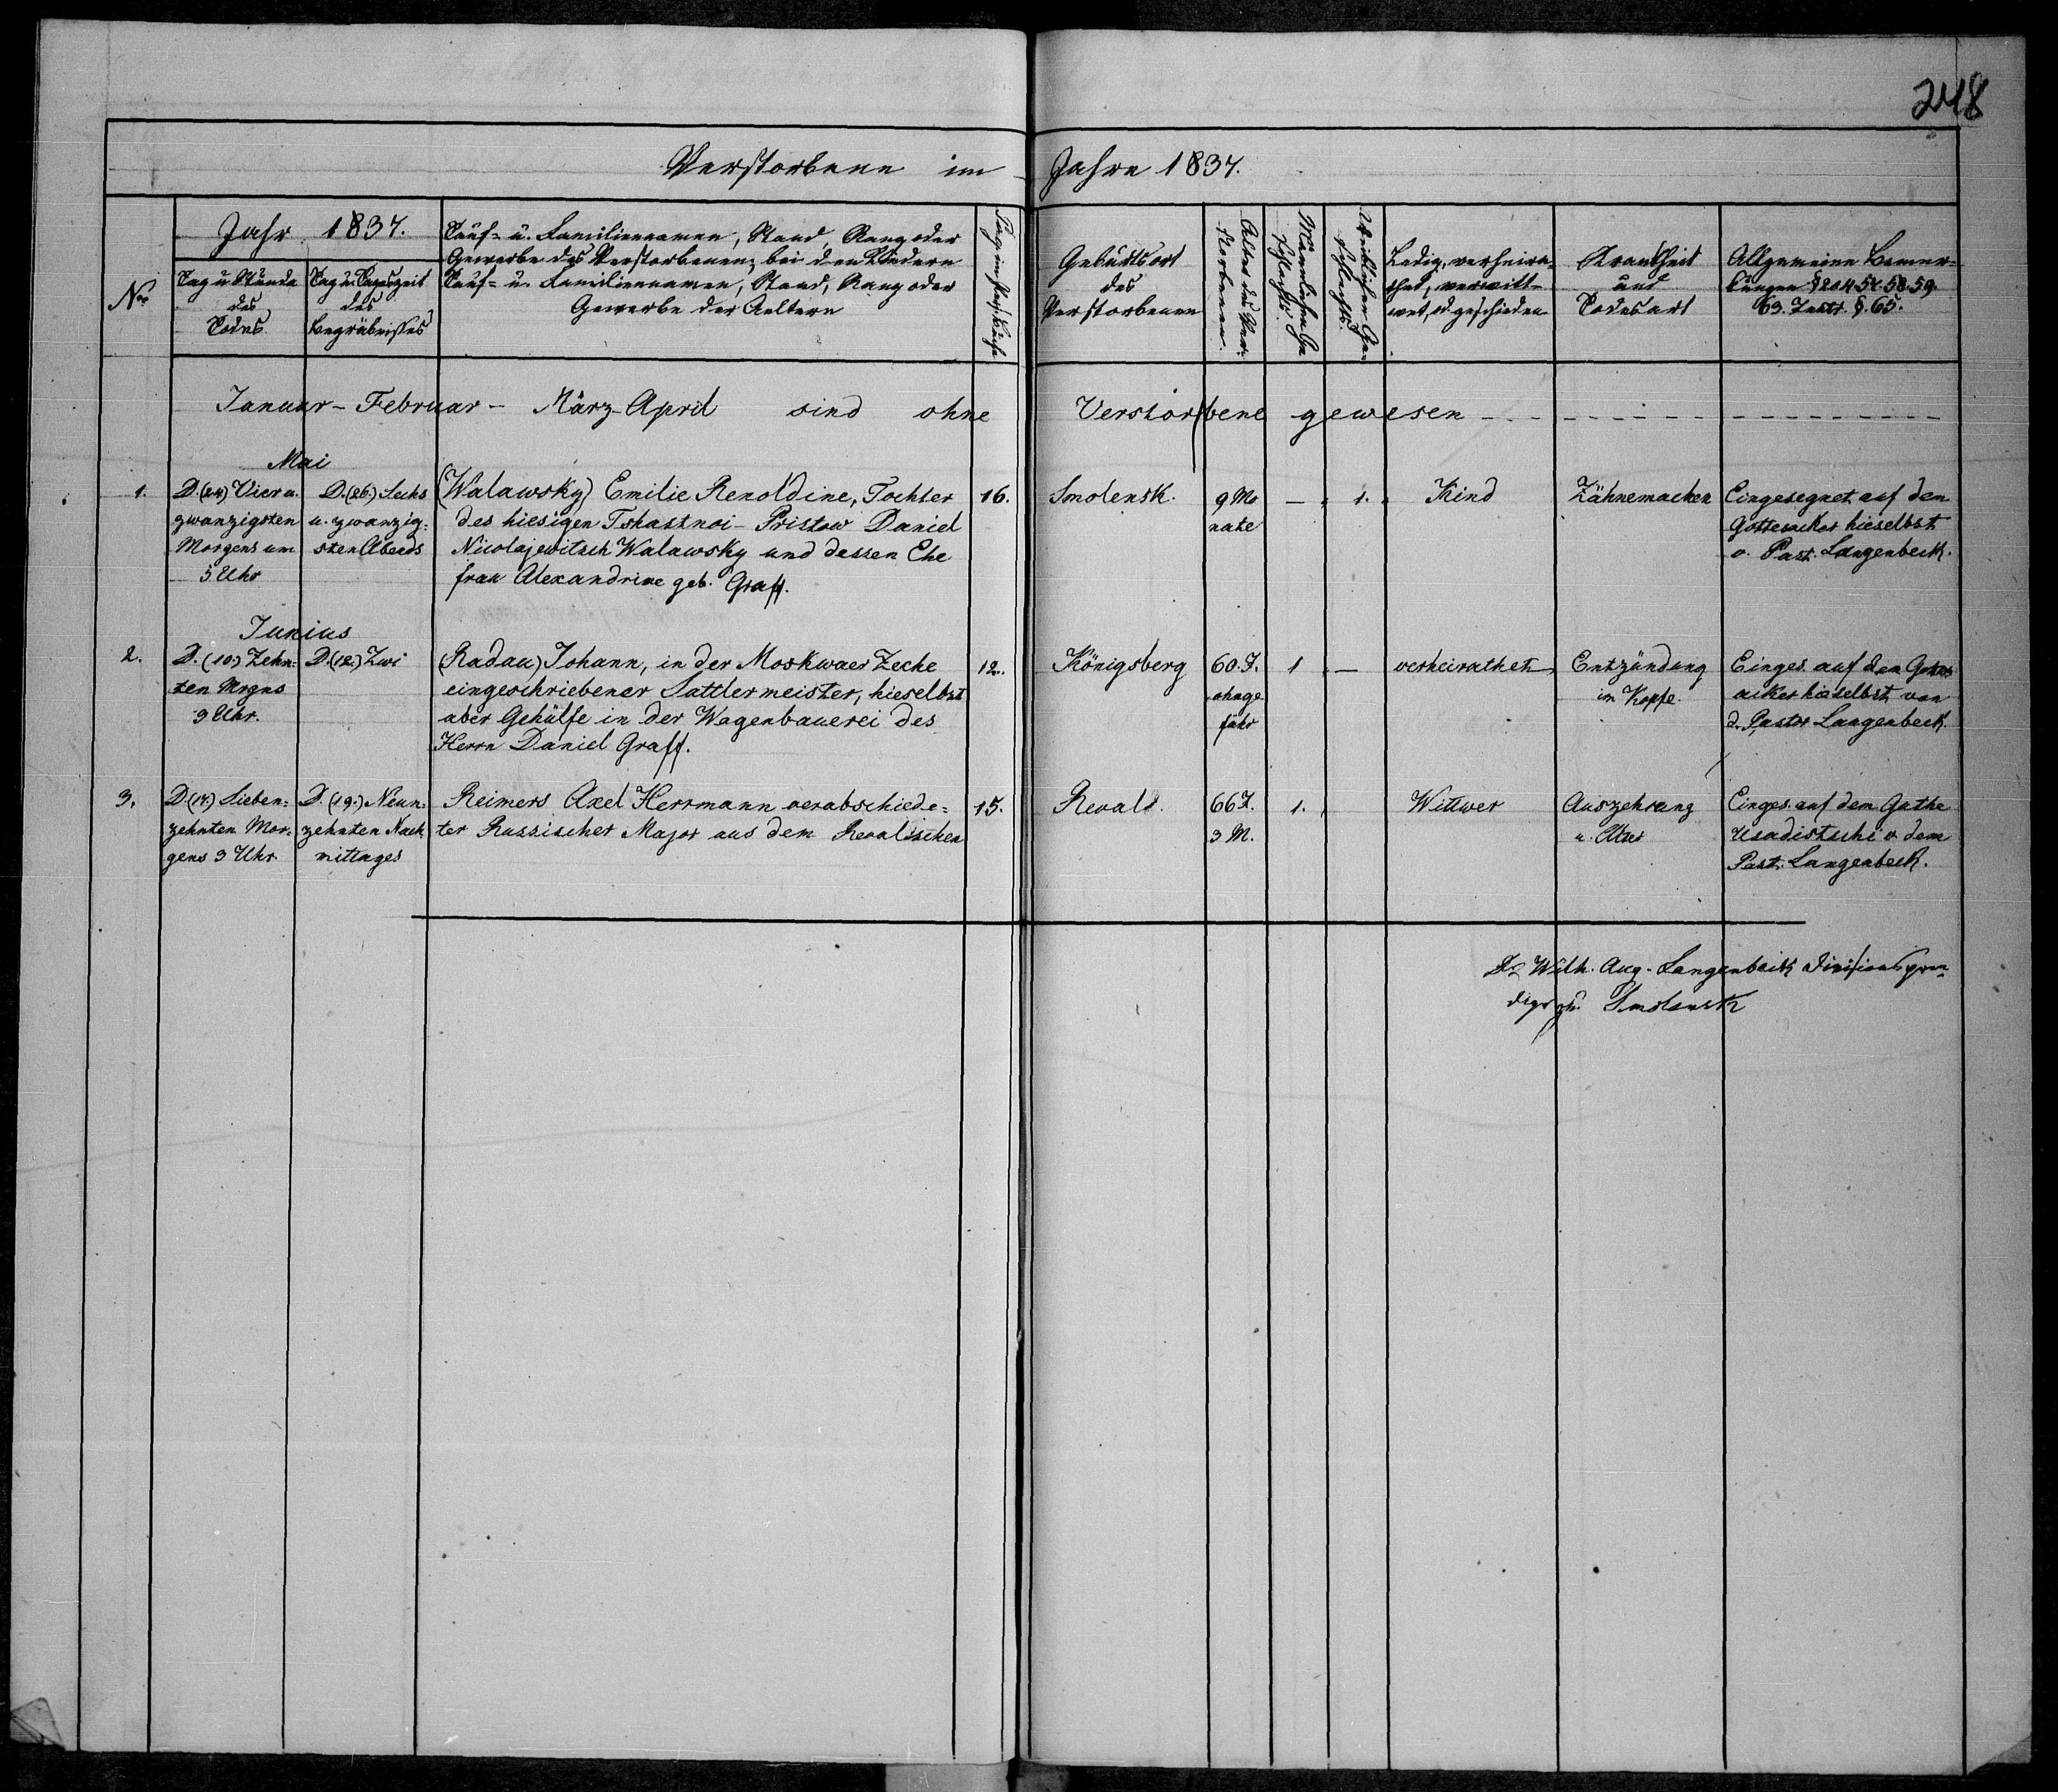 248
Verstorbene im Jahre 1837.
No
Jahr 1837.
Tag u. Stunde des Todes
Tag u. Tageszeit des Begräbnisses
Tauf- u. Familiennamen, Stand, Rang oder
Gewerbe des Verstorbenen; bei den Kindern
Tauf- u. Familiennamen, Stand, Rang oder
Gewerbe der Aeltern
Geburtsort
des
Verstorbenen
Alter des Ver-
storbenen.
Männlichen Ge
schlechts.
Weiblichen Ge-
schlechts.
Ledig, verheira-
thet, verwitt-
wet, od. geschieden
Krankheit
und
Todesart
Allgemeine Bemer-
kungen § 204. 57. 58. 59.
63. Instr. §. 65.
Januar - Februar - März - April sind ohne Verstorbene gewesen
Mai
1.
D. (24.) Vier u.
zwanzigsten
Morgens um
5 Uhr
D. (26.) Sechs
u. zwanzig-
sten Abends
(Walawsky) Emilie Renoldine, Tochter
des hiesigen Tshastnoi-Pristaw Daniel
Nicolajewitsch Walawsky und dessen Ehe
frau Alexandrine geb. Graff.
16.
Smolensk.
9 Mo
nate
— 1.
Kind
Zähnemachen
Eingesegnet auf dem
Gottesacker hieselbst
v. Past. Langenbeck.
Junius
2.
D. (10.) Zehn-
ten Mrgns
9 Uhr.
D. (12.) Zwi
(Radau) Johann, in der Moskwaer Zeche
eingeschriebener Sattlermeister, hieselbst
aber Gehülfe in der Wagenbauerei des
Herrn Daniel Graff.
12.
Königsberg
60. J.
ohnge
fähr
1 —
verheirathet
Entzündung
im Kopfe.
Einges. auf dem Gottes
acker hieselbst von
d. Pastor Langenbeck.
3.
D. (17.) Sieben-
zehnten Mor-
gens 3 Uhr
D. (19.) Neun-
zehnten Nach
mittages
Reimers Axel Herrmann verabschiede-
ter Russischer Major aus dem Revalschen
15.
Revals.
66 J.
3 M.
1.
Wittwer
Auszehrung
u. Alter
Einges. auf dem Guthe
Usadistschi v. dem
Past. Langenbeck.
Wilh. Aug. Langenbeck Divisionspre-
diger zu Smolensk